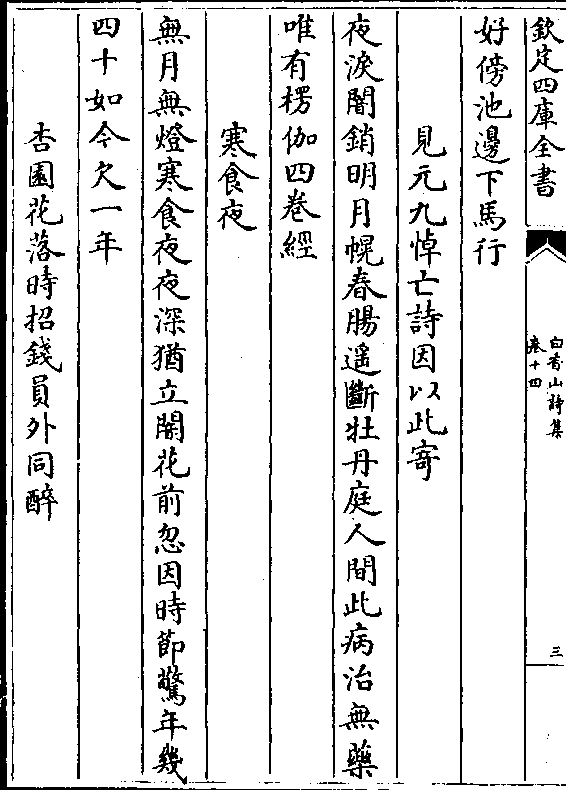 欽定四庫全書
白香山詩集
卷十四
三
好傍池邊下馬行
見元九悼亡詩因以此寄
夜淚闇銷明月幌春腸遥斷牡丹庭人間此病治無藥
唯有楞伽四卷經
寒食夜
無月無燈寒食夜夜深猶立闇花前忽因時節驚年幾
四十如今欠一年
杏園花落時招錢員外同醉